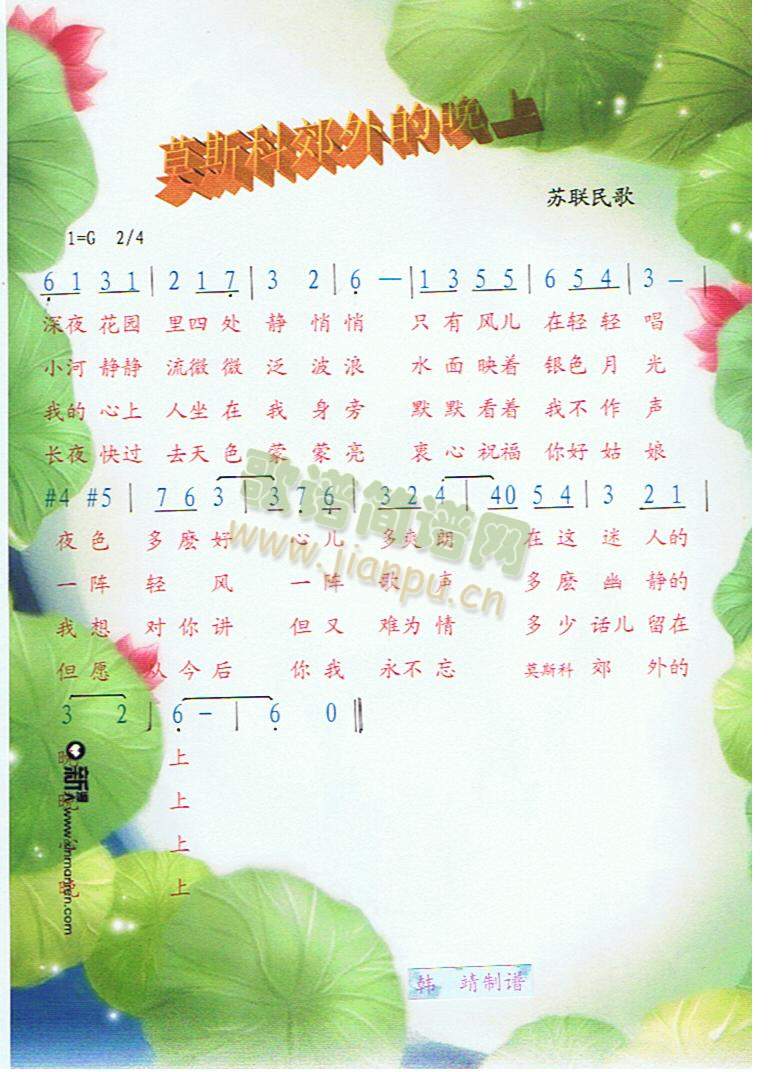 莫斯科郊外的晚上
苏联民歌
1=G 2/4
6 1 3 1 | 2 1 7 | 3 2 | 6 — | 1 3 5 5 | 6 5 4 | 3 — |
深夜 花园 里四 处 静 悄悄 只 有 风儿 在轻 轻 唱
小河 静静 流微 微 泛 波 浪 水 面 映着 银色 月 光
我的 心上 人坐 在 我 身 旁 默 默 看着 我不 作 声
长夜 快过 去天 色 蒙 蒙 亮 衷 心 祝福 你好 姑 娘
#4 #5 | 7 6 3 | 3 7 6 | 3 2 4 | 40 5 4 | 3 2 1 |
夜 色 多 麽 好 心 儿 多 爽 朗 在 这 迷 人的
一 阵 轻 风 一 阵 歌 声 多 麽 幽 静的
我 想 对 你 讲 但 又 难为 情 多 少 话儿 留在
但 愿 从 今 后 你 我 永不 忘 莫斯科 郊 外的
3 2 | 6 — | 6 0 ‖
上
上
上
上
歌谱简谱网
www.jianpu.cn
韩 靖制谱